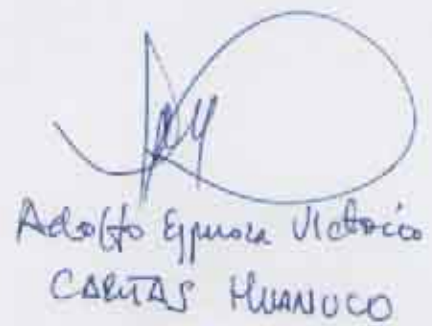 Adolfo Espinoza Victorio
CARITAS HUANUCO